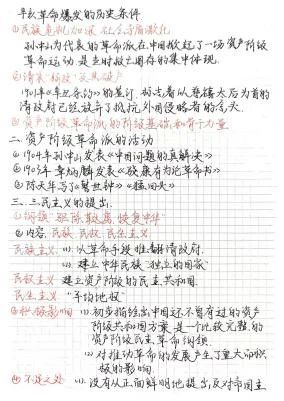 辛亥革命爆发的历史条件
①民族危机加深 社会矛盾激化
孙中山为代表的革命派在中国掀起了一场资产阶级
革命运动 是当时救亡图存的集中体现
②清末"新政"及其破产
1901年《辛丑条约》的签订. 标志着以慈禧太后为首的
清政府已经放弃了抵抗外国侵略者的念头
③资产阶级革命派的阶级基础和骨干力量
二. 资产阶级革命派的活动
①1904年孙中山发表《中国问题的真解决》
②1903年 章炳麟发表《驳康有为论革命书》
③陈天华写了《警世钟》《猛回头》
三. 三民主义的提出
①纲领"驱除鞑虏, 恢复中华"
②内容. 民族. 民权. 民生主义
民族主义. (1). 以革命手段推翻清政府.
(2). 建立中华民族"独立的国家"
民权主义 建立资产阶级的民主共和国
民生主义 "平均地权"
③积极影响 (1). 初步描绘出中国还不曾有过的资产
阶级共和国方案. 是一个比较完整的
资产阶级民主革命纲领.
(2). 对推动革命的发展产生了重大而积
极的影响.
④不足之处 (1). 没有从正面鲜明地提出反对帝国主